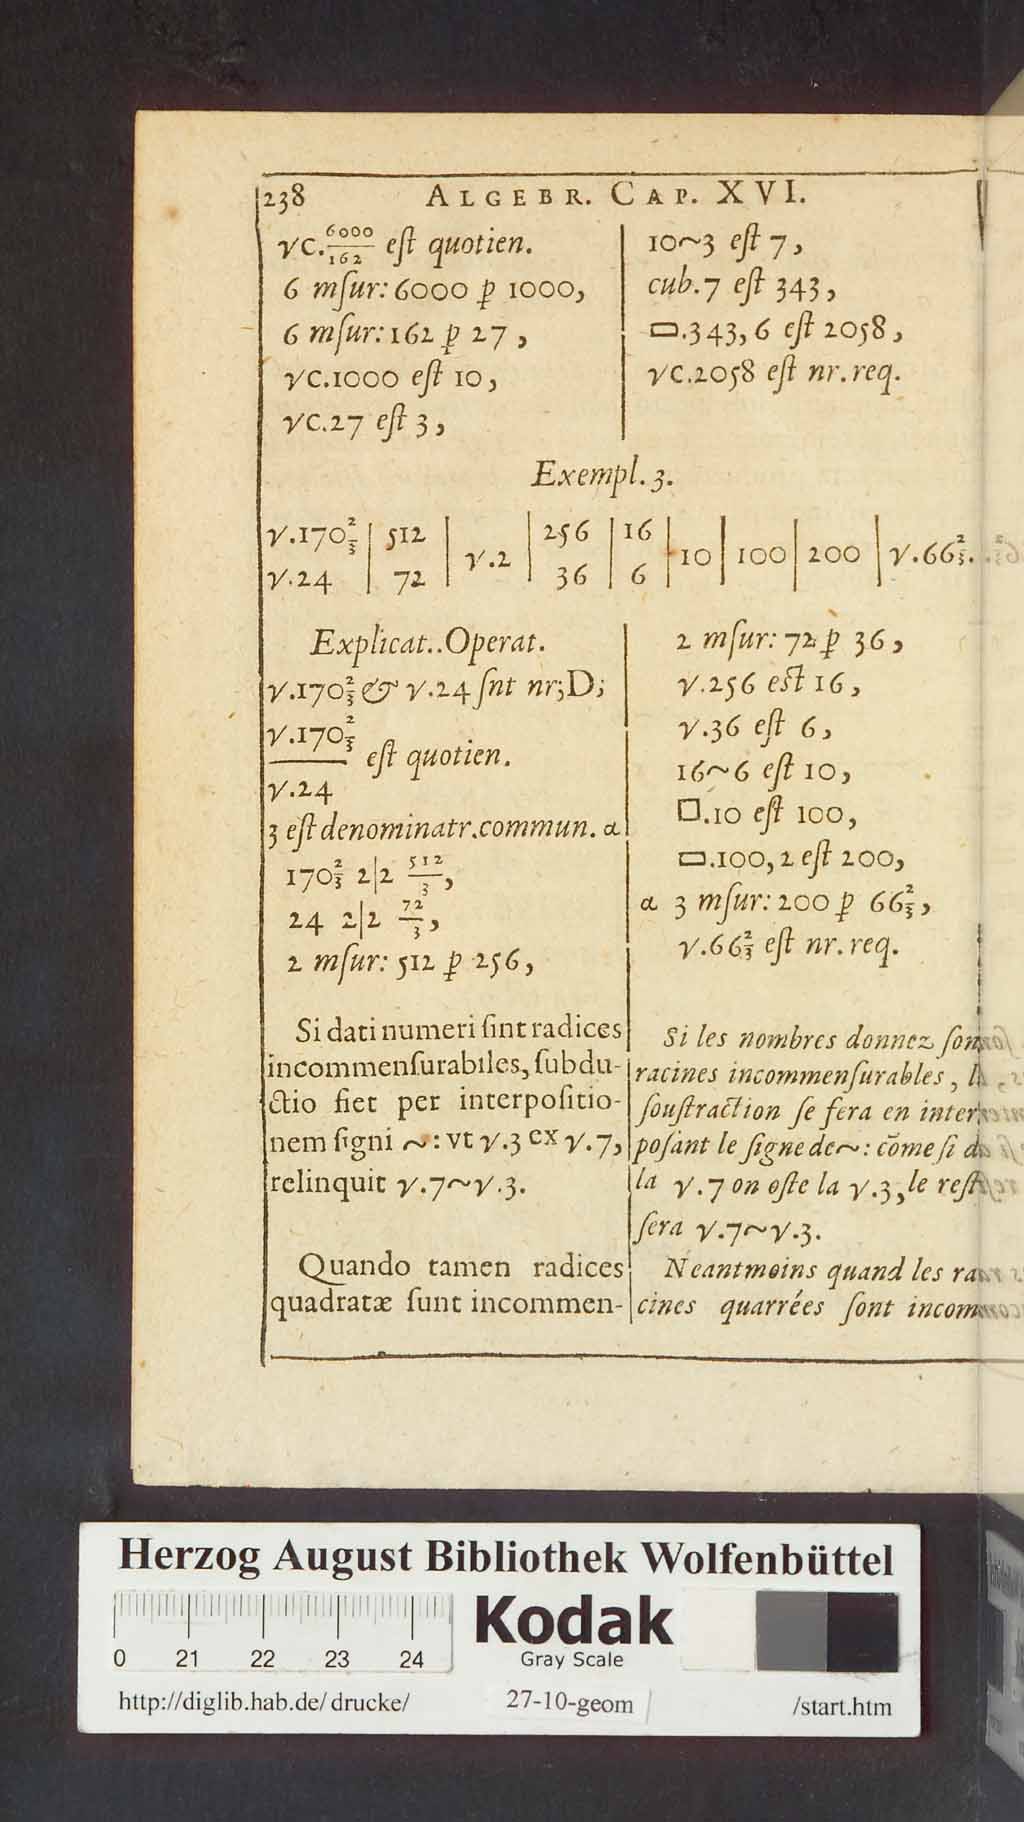 238 ALGEBR. CAP. XVI.
√C.6000/162 eſt quotien.
6 mſur: 6000 ꝑ 1000,
6 mſur: 162 ꝑ 27,
√C.1000 eſt 10,
√C.27 eſt 3,
10~3 eſt 7,
cub.7 eſt 343,
▭.343,6 eſt 2058,
√C.2058 eſt nr.req.
Exempl.3.
√.170⅔ | 512 | √.2 | 256 | 16 | 10 | 100 | 200 | √.66⅔.
√.24 | 72 | 36 | 6
Explicat..Operat.
√.170⅔ & √.24 ſnt nr;D;
√.170⅔
eſt quotien.
√.24
3 eſt denominatr.commun. α
170⅔ 2|2 512/3,
24 2|2 72/3,
2 mſur: 512 ꝑ 256,
2 mſur: 72 ꝑ 36,
√.256 eſt 16,
√.36 eſt 6,
16~6 eſt 10,
□.10 eſt 100,
▭.100,2 eſt 200,
α 3 mſur: 200 ꝑ 66⅔,
√.66⅔ eſt nr.req.
Si dati numeri ſint radices
incommenſurabiles, ſubdu-
ctio fiet per interpoſitio-
nem ſigni ~: vt √.3 ex √.7,
relinquit √.7~√.3.
Quando tamen radices
quadratæ ſunt incommen-
Si les nombres donnez ſon
racines incommenſurables, l
ſouſtraction ſe fera en inter
poſant le ſigne de ~: cõme ſi d
la √.7 on oſte la √.3, le reſt
ſera √.7~√.3.
Neantmoins quand les ra
cines quarrées ſont incom
Herzog August Bibliothek Wolfenbüttel
Kodak
Gray Scale
0 21 22 23 24
http://diglib.hab.de/drucke/ 27-10-geom /start.htm